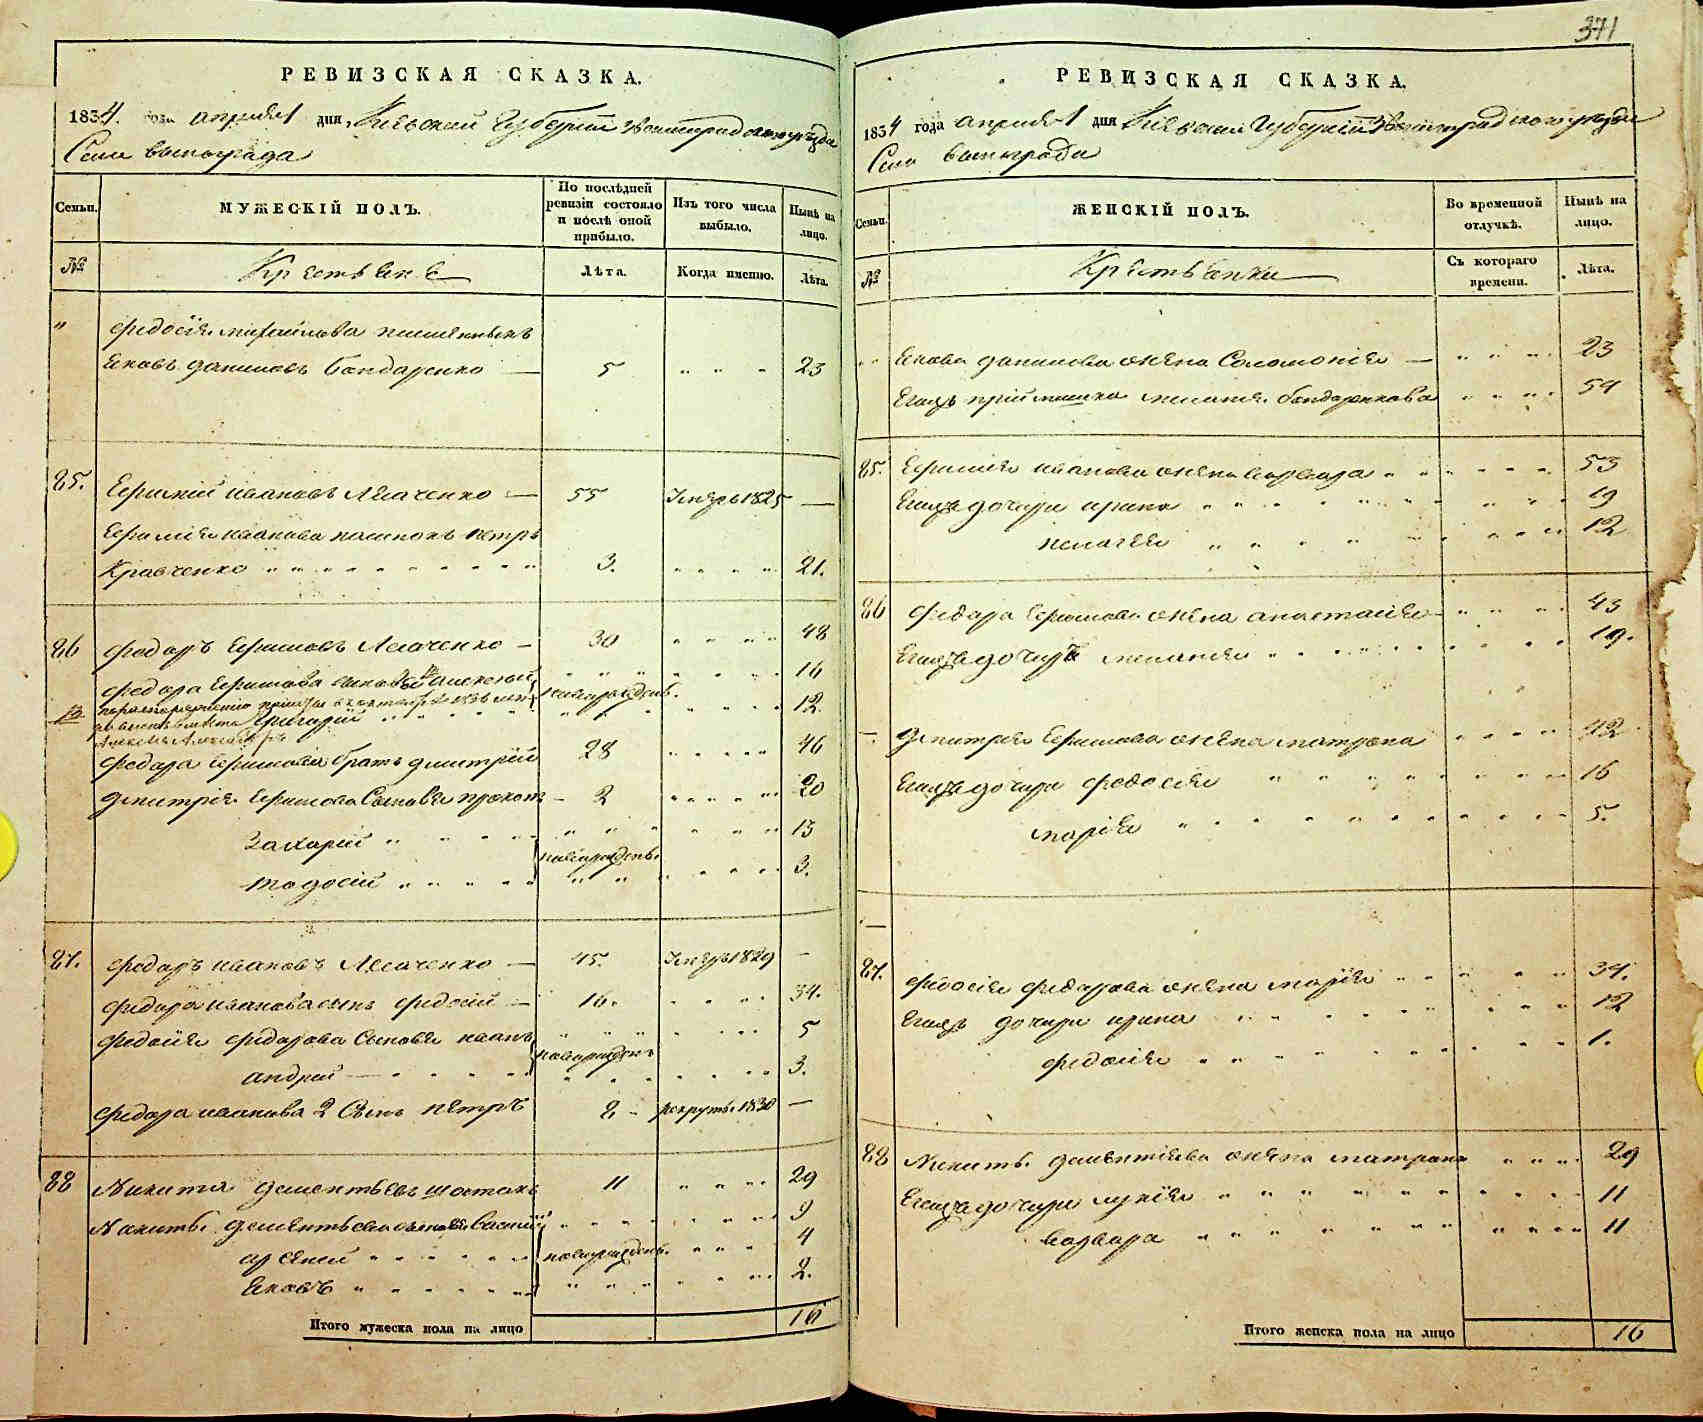 371
РЕВИЗСКАЯ СКАЗКА.
1834. года апреля 1 дня, Киевской Губернии Звенигородского уезда
Села винограда
Семьи. МУЖЕСКІЙ ПОЛЪ. По послѣдней ревизіи состояло и послѣ оной прибыло. Изъ того числа выбыло. Нынѣ на лицо.
№ Крестьяне Лѣта. Когда именно. Лѣта.
" Федосія михайлова
Яковъ даниловъ бондаренко — 5 " " " 23
85. Ефимій ивановъ Лесаченко — 55 Умеръ 1825 —
Ефимія иванова пасинокъ петръ
Кравченко 3. 21.
86 Федоръ Ефимовъ Лесаченко — 30 48
Федора Ефимова сыновья алексей 16
новорожден.
Григорій 12.
Федора Ефимова братъ дмитрій 28 46
Дмитрія Ефимова Сыновья прокопъ — 2 20
Захарій 13
новорожден.
тодосій 3.
87. Федоръ ивановъ Лесаченко — 45. Умеръ 1829 —
Федора иванова сынъ федосій — 16. 34.
Федосія федорова Сыновья иванъ 5
новорожден
андрей — 3.
Федора иванова 2 Сынъ петръ 8 — рекрутъ. 1830 —
88 Никита дементьевъ шостакъ 11 29
Никиты дементьева сыновья василій 9
арсеней новорожден. 4
Яковъ 2.
Итого мужеска пола на лицо 16
РЕВИЗСКАЯ СКАЗКА.
1834 года апреля 1 дня Киевской Губернии Звенигородского уезда
Села винограда
Семьи. ЖЕНСКІЙ ПОЛЪ. Во временной отлучкѣ. Нынѣ на лицо.
№ Крестьянки Съ котораго времени. Лѣта.
" " Якова данилова жена Соломонія — 23
Егожъ меланія бондаренкова 54
85. Ефимія иванова жена варвара 53
Егожъ дочери ирина 19
пелагея 12
86 Федора Ефимова жена анастасія 43
Егожъ дочь меланія 19.
— Дмитрія Ефимова жена матрона 42
Егожъ дочери федосія 16
марія 5.
—
87. Федосія федорова жена марія 34.
Егожъ дочери ирина 12
федосія 1.
88 Никиты дементіева жена матрона 29
Егожъ дочери лукія 11
варвара 11
Итого женска пола на лицо 16